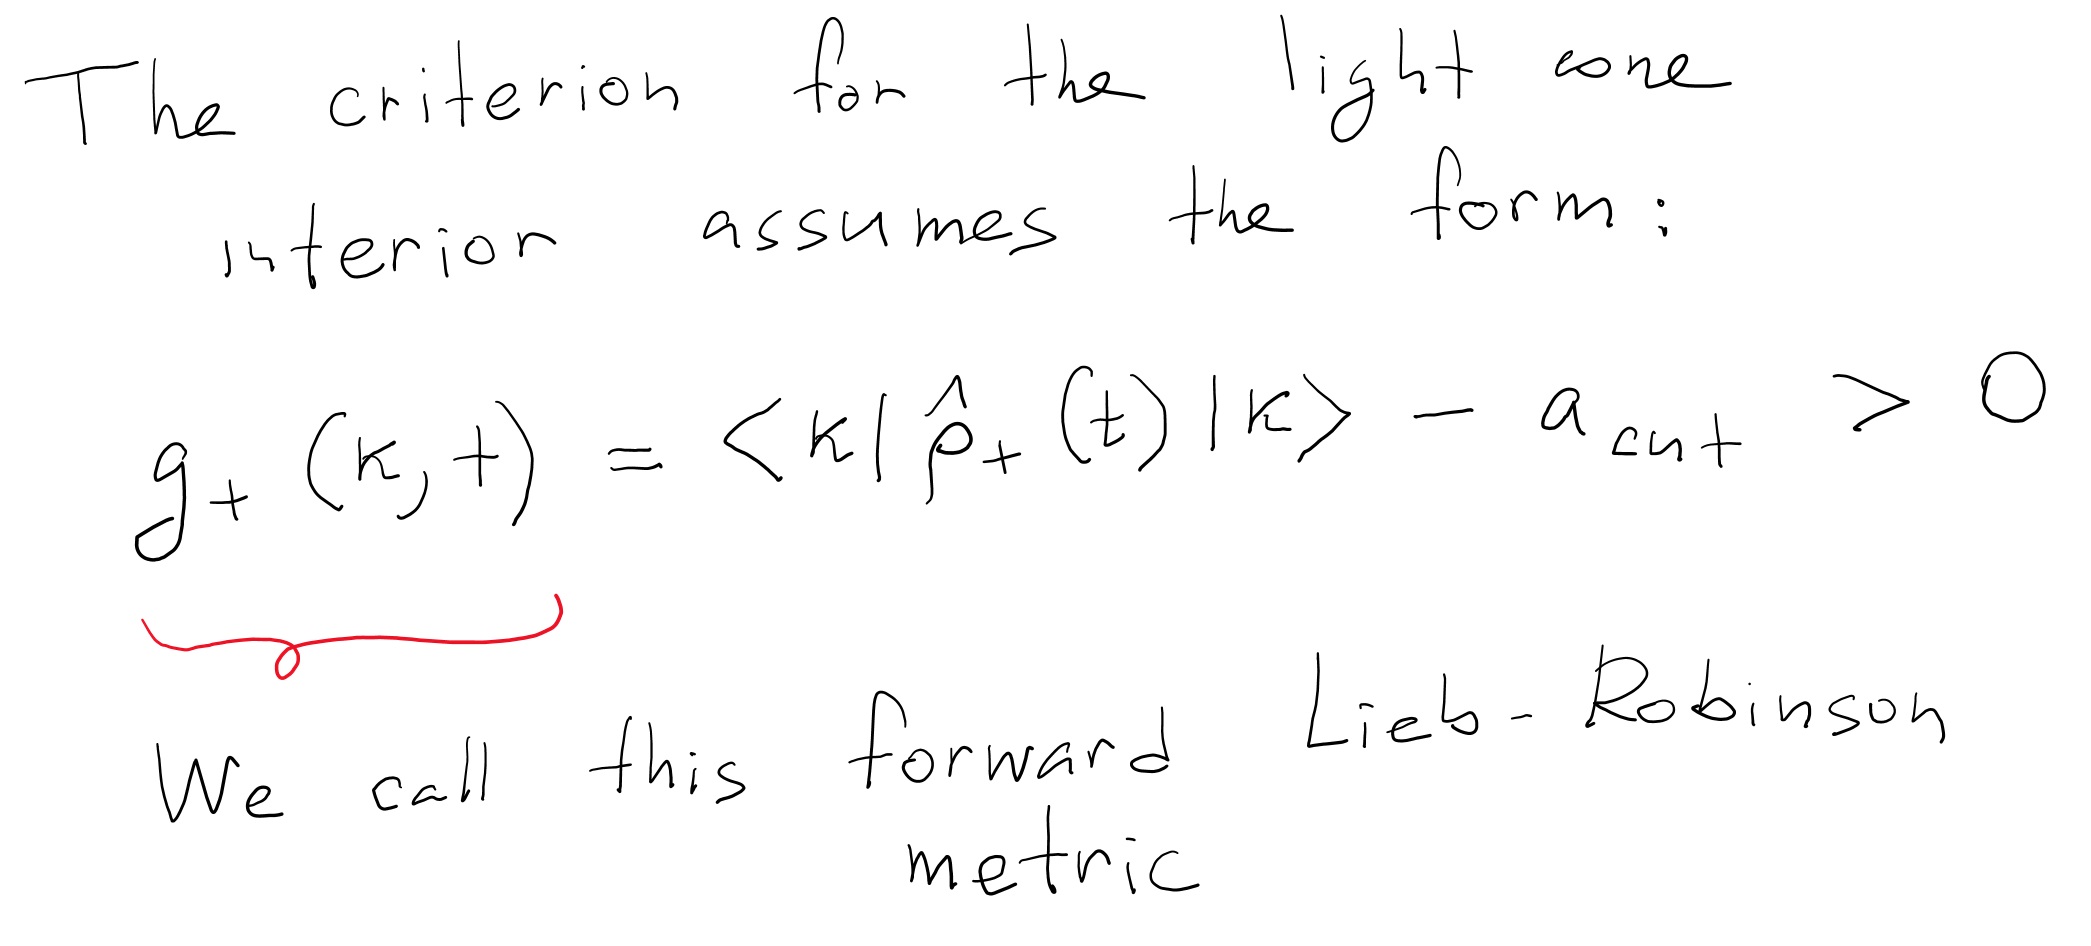 The criterion for the light cone
interior assumes the form:
g₊(k,t) = <k| ρ̂₊(t) |k> − a_cut > 0
We call this forward Lieb-Robinson
metric